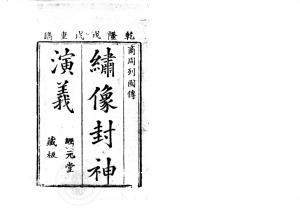 乾隆戊戌重鐫
商周列國傳
繡像封神
演義
元堂
藏板